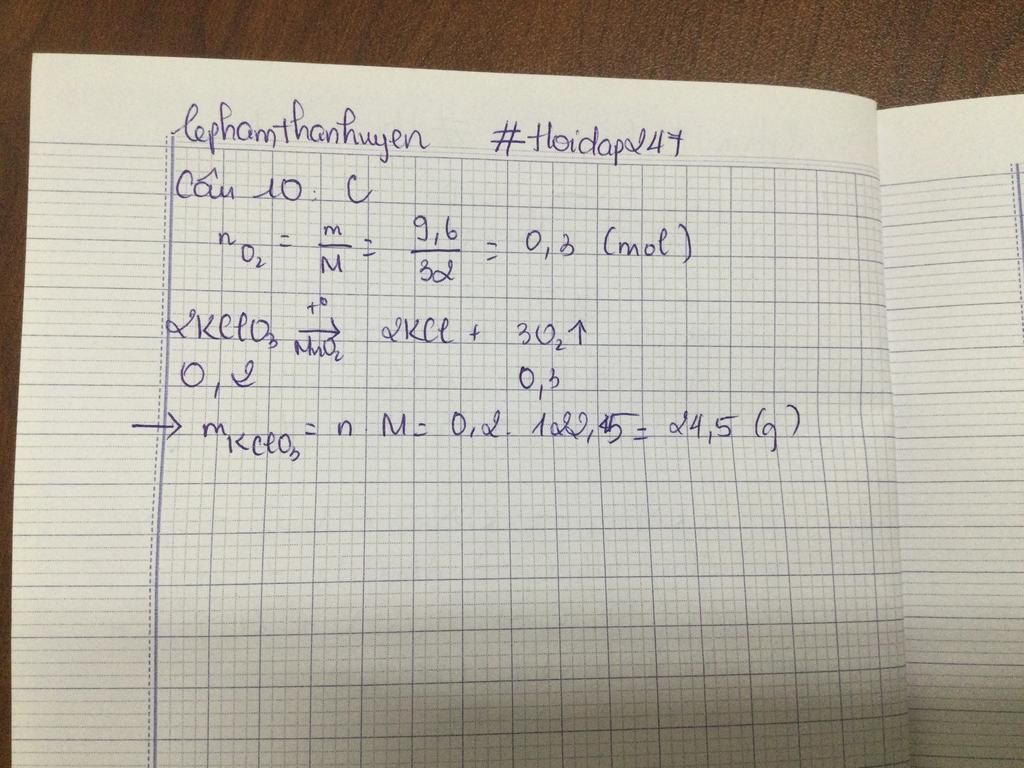 lephamthanhuyen #Hoidap247
Câu 10: C
n O₂ = m/M = 9,6/32 = 0,3 (mol)
2KClO₃ →(t° / MnO₂) 2KCl + 3O₂↑
0,2 0,3
→ m KClO₃ = n. M = 0,2. 122,5 = 24,5 (g)